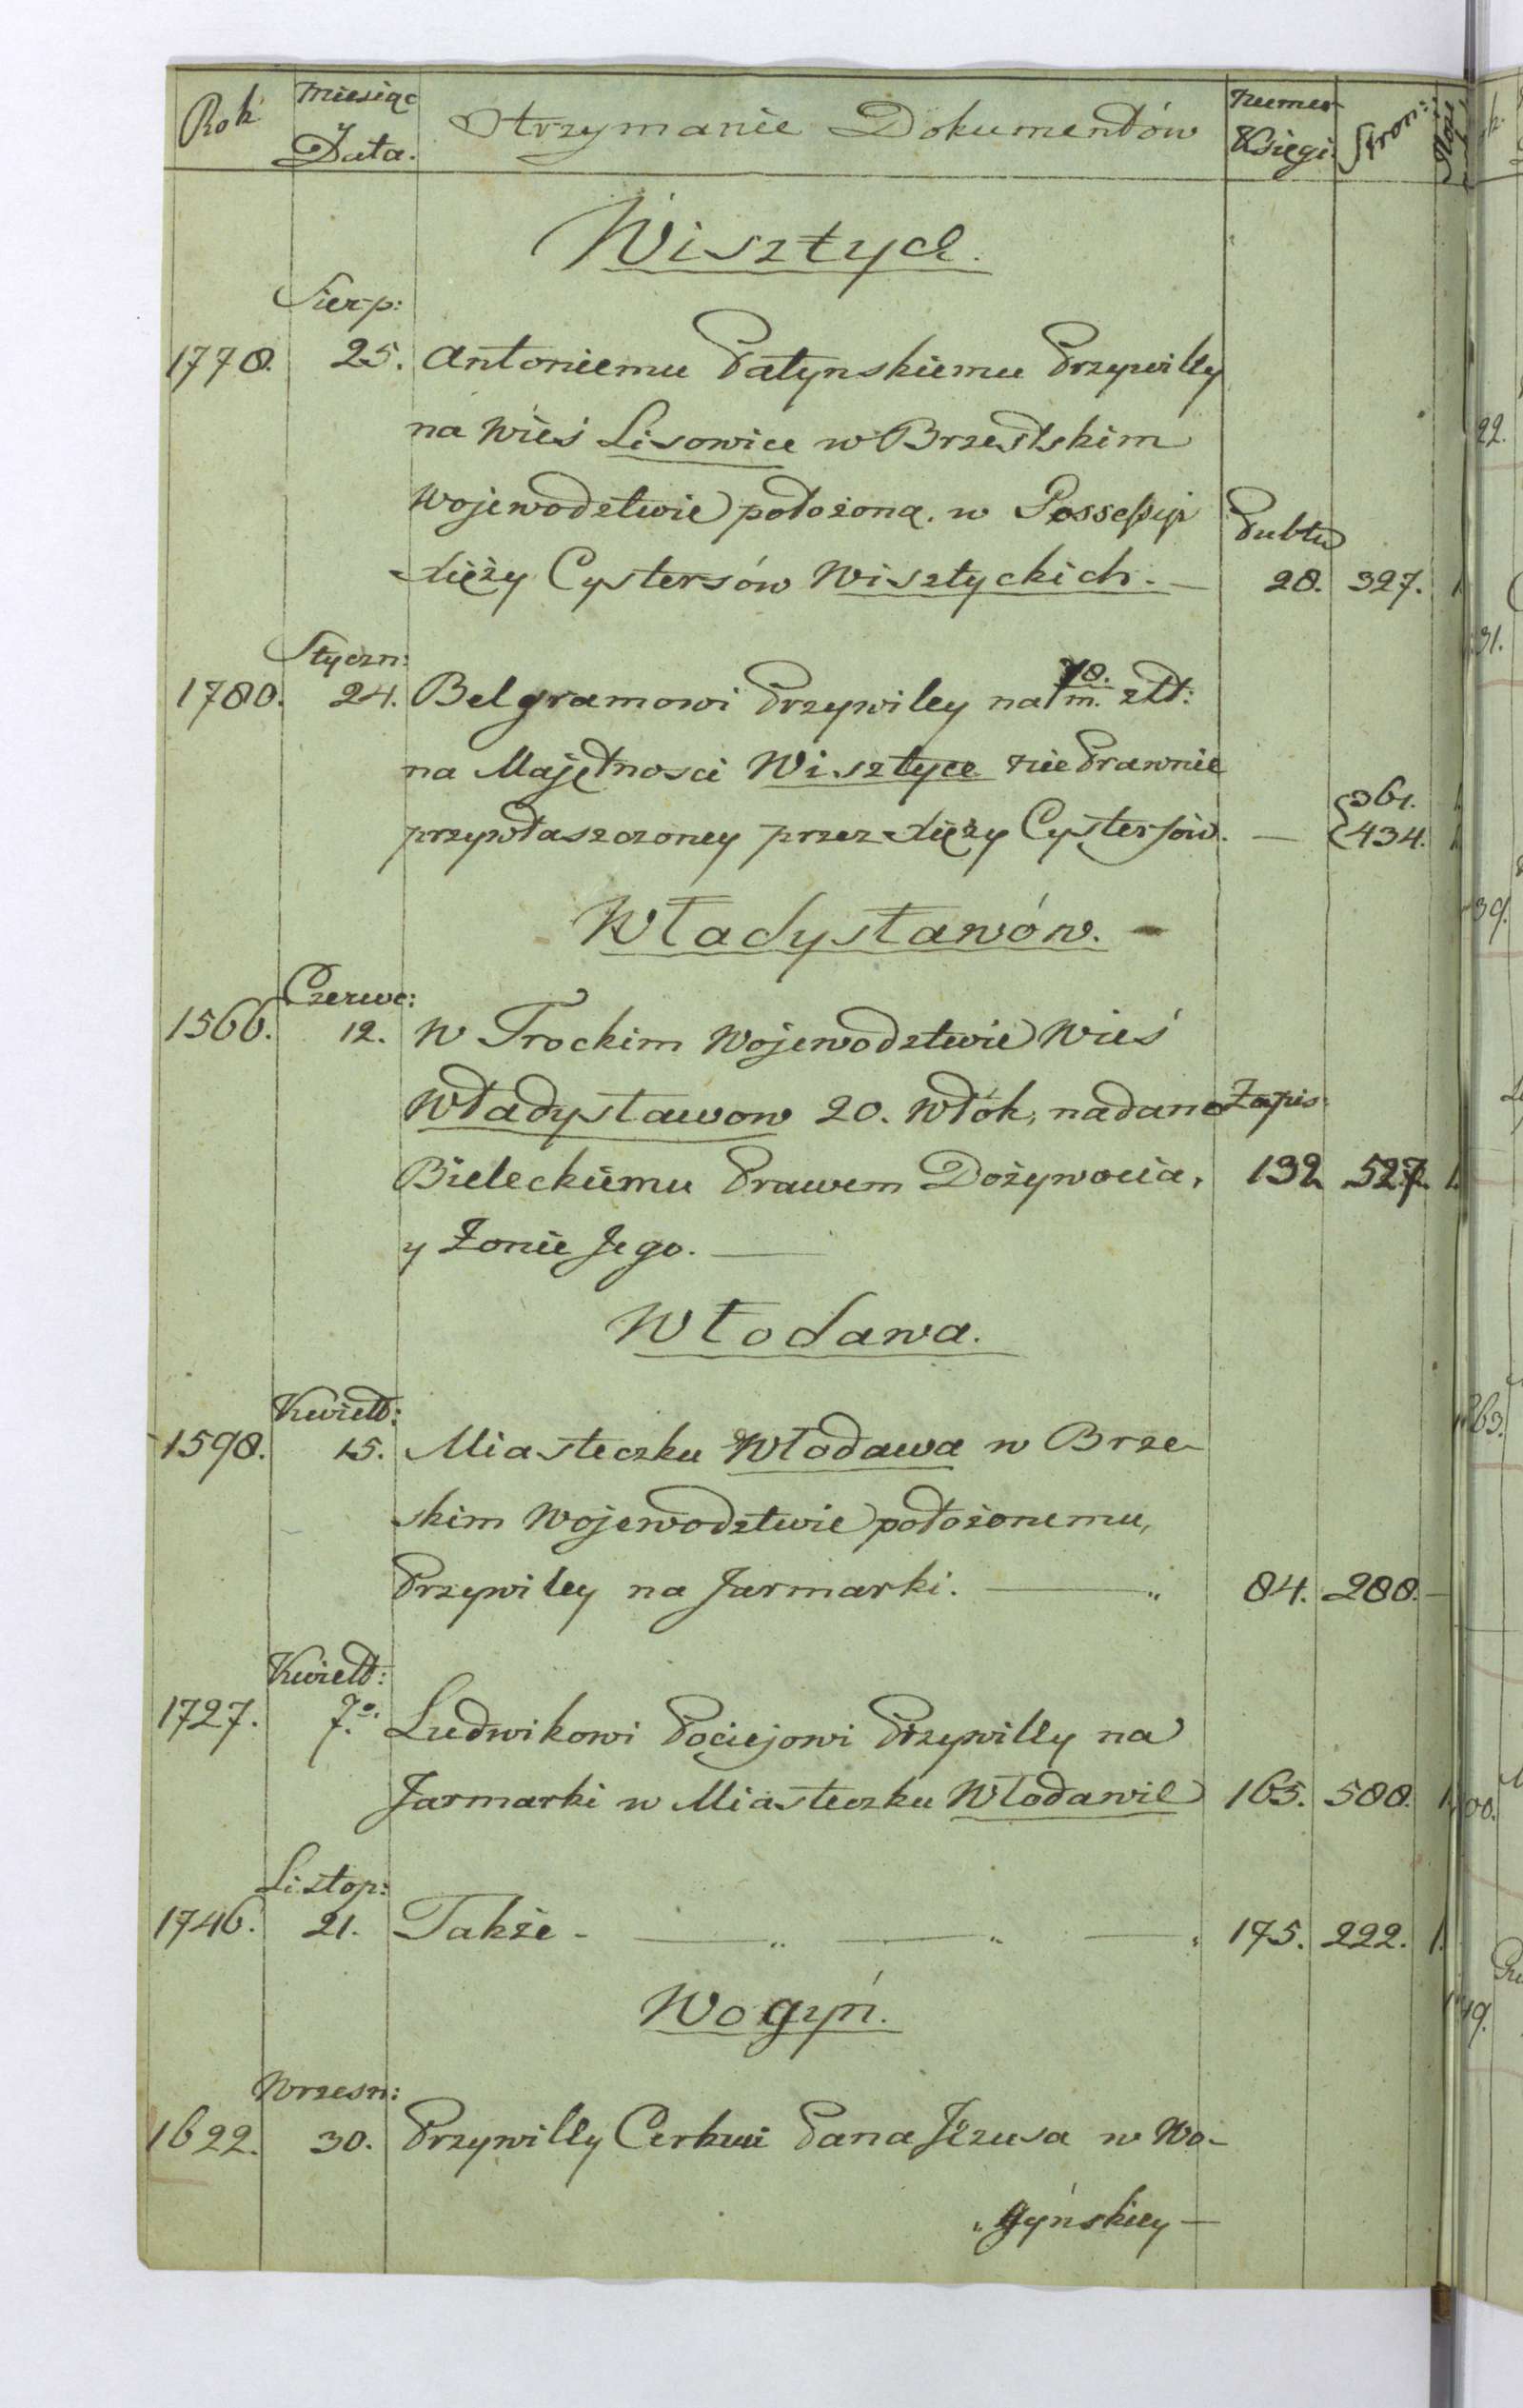 Rok Miesiąc y Data. Otrzymanie Dokumentów Numer Księgi Stron:
Wisztyce.
Sierp:
1778. 25. Antoniemu Patynskiemu Przywilly
na wieś Lisowice w Brzestskim
Wojewodztwie położoną. w Possessyi
Xięży Cystersów Wisztyckich. — Publ:
28. 327. 1
Styczn:
1780. 24. Belgramowi Przywiley na 78. m. złł:
na Majętnosci Wisztyce nie Prawnie
przywłaszczoney przez Xięży Cystersów. — {361. 1
{434. 1
Władysławów. —
Czerwc:
1566. 12. w Trockim Wojewodztwie Wieś
Władysławow 20. Włók, nadana Zapis:
Bieleckiemu Prawem Dożywocia, 132 527. 1.
y Żonie Jego. —
Włodawa.
Kwiett:
1598. 15. Miasteczku Włodawa w Brze-
skim Wojewodztwie położonemu,
Przywiley na Jarmarki. — „ 84. 288. —
Kwiett:
1727. 7.o Ludwikowi Pociejowi Przywilly na
Jarmarki w Miasteczku Włodawie 165. 588. 1.
Listop:
1746. 21. Także - — „ — „ — „ 175. 222. 1.
Wogyń.
Wrzesn:
1622. 30. Przywilly Cerkwi Pana Jezusa w Wo-
„gyńskiey —